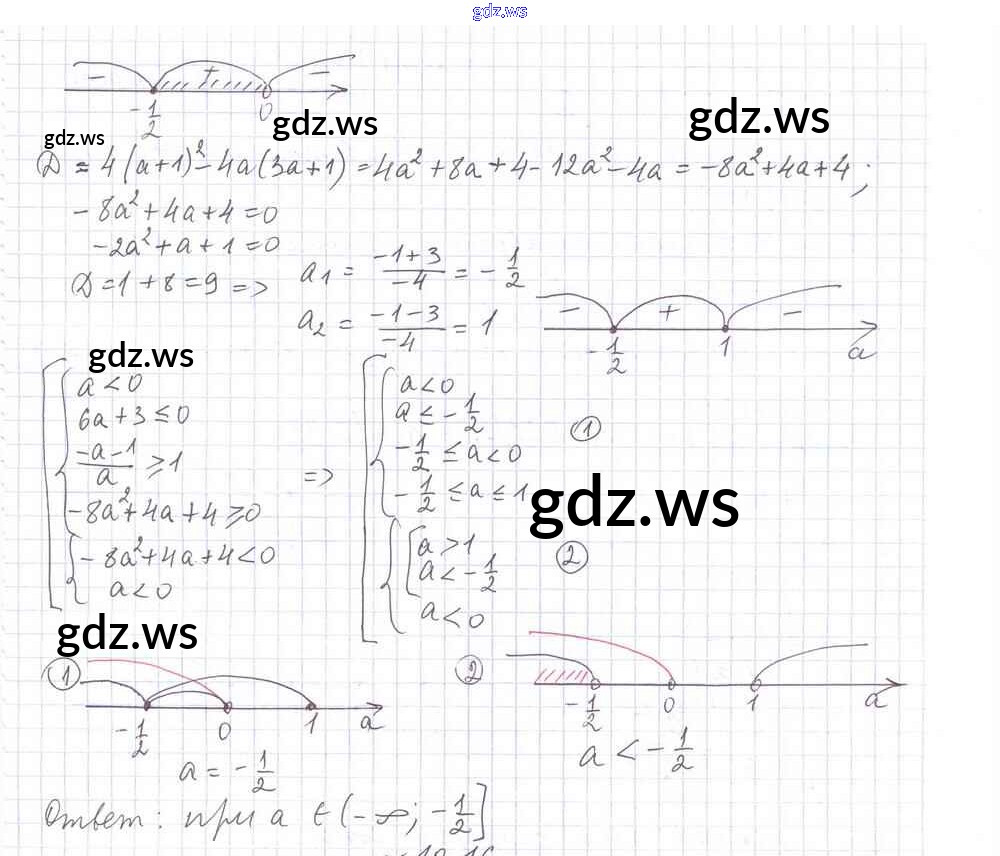 gdz.ws
- + -
-1/2 0
gdz.ws gdz.ws gdz.ws
D = 4(a+1)² - 4a(3a+1) = 4a² + 8a + 4 - 12a² - 4a = -8a² + 4a + 4;
-8a² + 4a + 4 = 0
-2a² + a + 1 = 0
D = 1 + 8 = 9 => a₁ = (-1+3)/-4 = -1/2
a₂ = (-1-3)/-4 = 1
- + -
-1/2 1 a
gdz.ws
a < 0
6a + 3 ≤ 0
(-a-1)/a ≥ 1
-8a² + 4a + 4 ≥ 0
-8a² + 4a + 4 < 0
a < 0
=>
a < 0
a ≤ -1/2
-1/2 ≤ a < 0
-1/2 ≤ a ≤ 1
①
gdz.ws
a > 1
a < -1/2
a < 0
②
gdz.ws
①
-1/2 0 1 a
a = -1/2
②
-1/2 0 1 a
a < -1/2
Ответ: при a ∈ (-∞; -1/2]